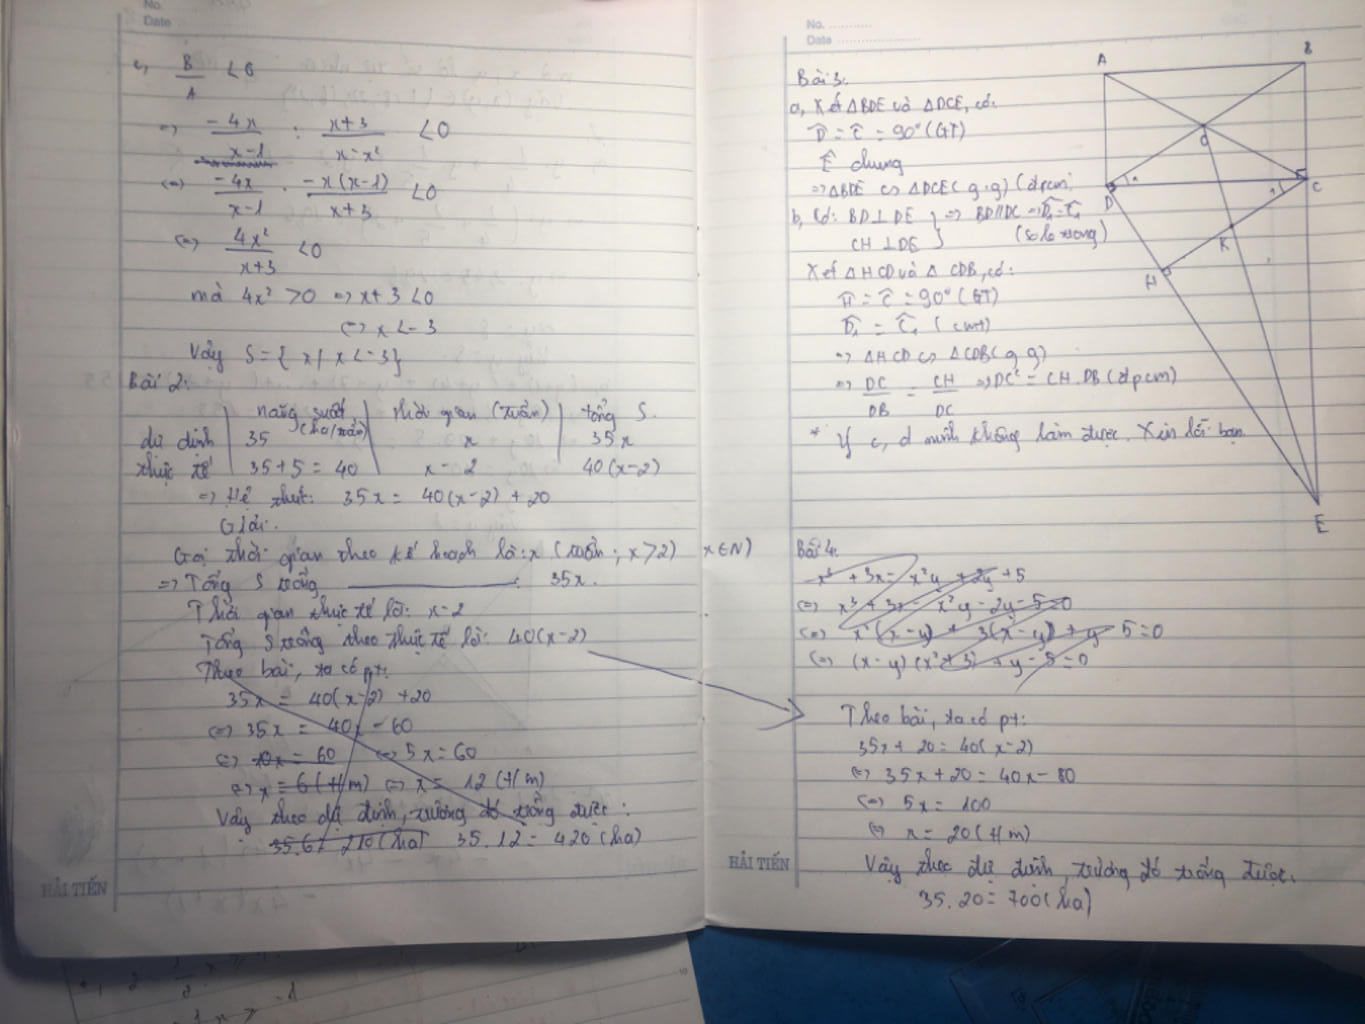 No.
Date
c, B/A < 0
=> -4x/x-1 : x+3/x-x² < 0
<=> -4x/x-1 . -x(x-1)/x+3 < 0
<=> 4x²/x+3 < 0
mà 4x² > 0 => x + 3 < 0
<=> x < -3
Vậy S = { x / x < -3}
Bài 2:
năng suất (ha/tuần) | thời gian (tuần) | tổng S.
dự định | 35 | x | 35x
thực tế | 35+5 = 40 | x - 2 | 40(x-2)
=> Hệ thức: 35x = 40(x-2) + 20
Giải.
Gọi thời gian theo kế hoạch là: x (tuần; x>2) x∈N)
=> Tổng S trồng : 35x.
Thời gian thực tế là: x-2
Tổng S trồng theo thực tế là: 40(x-2)
Theo bài, ta có pt:
35x = 40(x-2) + 20
<=> 35x = 40x - 60
<=> 10x = 60 <=> 5x = 60
<=> x = 6 (t/m) <=> x = 12 (t/m)
Vậy theo dự định, trường đó trồng được:
35.6 = 210 (ha) 35.12 = 420 (ha)
HẢI TIẾN
No.
Date
Bài 3:
a, Xét ΔBDE và ΔDCE, có:
D̂ = Ĉ = 90° (GT)
Ê chung
=> ΔBDE ∽ ΔDCE (g.g) (đpcm)
b, Có: BD ⊥ DE
CH ⊥ DE } => BD//DC => D̂₁ = Ĉ₁
(so le trong)
Xét ΔHCD và ΔCDB, có:
Ĥ = Ĉ = 90° (GT)
D̂₁ = Ĉ₁ (cmt)
=> ΔHCD ∽ ΔCDB (g.g)
=> DC/DB = CH/DC => DC² = CH.DB (đpcm)
* Ý c, d mình không làm được. Xin lỗi bạn.
A
B
O
D
1
1
C
K
H
E
Bài 4:
x³ + 3x = x²y + 2y + 5
<=> x³ + 3x - x²y - 2y - 5 = 0
<=> x²(x-y) + 3(x-y) + y - 5 = 0
<=> (x-y)(x²+3) + y - 5 = 0
Theo bài, ta có pt:
35x + 20 = 40(x-2)
<=> 35x + 20 = 40x - 80
<=> 5x = 100
<=> x = 20 (t/m)
Vậy theo dự định, trường đó trồng được.
35.20 = 700 (ha)
HẢI TIẾN